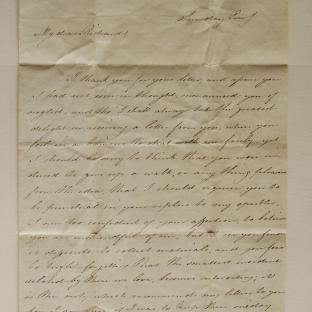 Sunday Eve
My dear Richard
I thank you for your letter, and assure you
I had not even in thought, accused you of
neglect, and tho' I shall always take the greatest
delight in receiving a letter from you, when you
feel in a humour to do it with me, yet
I should be sorry to think that you were in
duced to give up a walk, or any thing pleasant
from the idea, that I should require you to
be punctual in your replies to my epistles.
I am too confident of your affection, to believe
you are unmindful of me, but
is difficult to collect materials, and you fear
to forgetting that the smallest incident
related by those we love, becomes interesting; It
is this only which recommends my letters to you